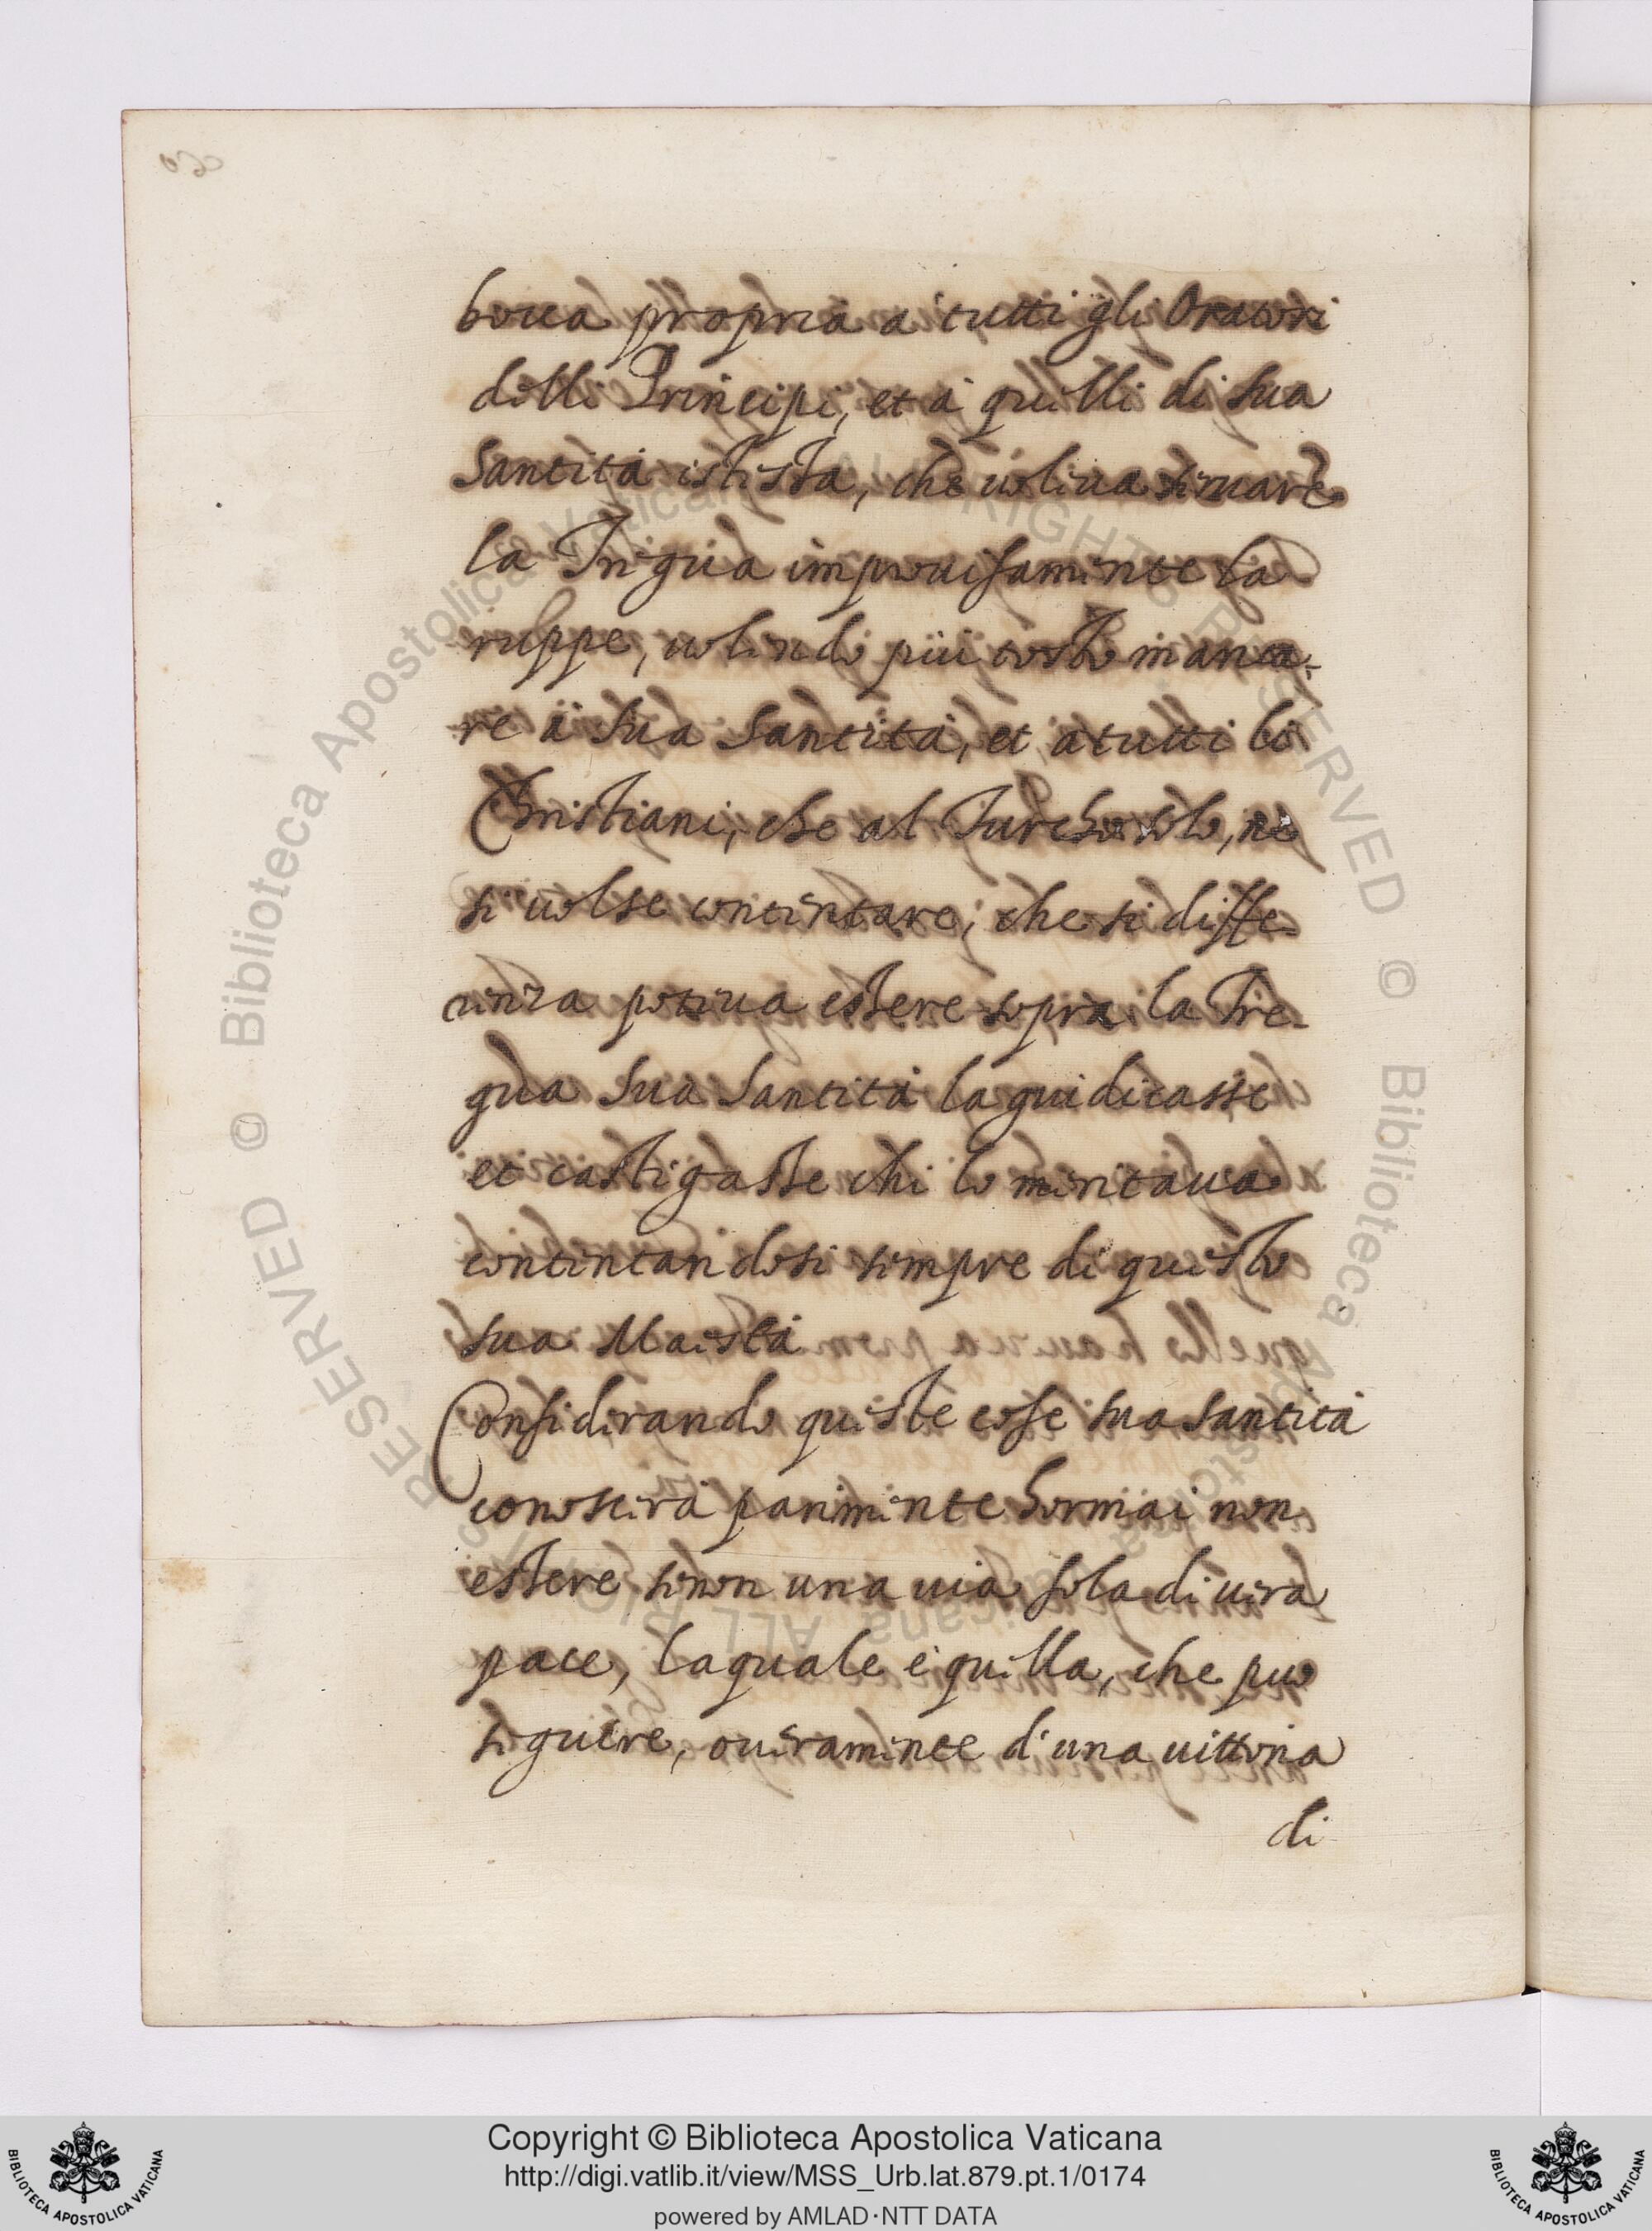 bocca propria a tutti gli Oratori
delli Principi, et à quelli di sua
Santità istessa, che uoleua seruare
la Tregua improuisamente la
ruppe, uolendo più tosto manca-
re à sua Santità, et à tutti li
Christiani, che al Turcho solo, ne
si uolse contentare, che se diffe-
renza poteua essere sopra la Tre-
gua sua Santità la giudicasse
et castigasse chi lo meritaua
contentandosi sempre di questo
sua Maestà
Considerando queste cose sua Santità
conoscerà parimente hormai non
essere senon una uia sola di uera
pace, laquale è quella, che può
seguire, oueramente d'una uittoria
di
Copyright © Biblioteca Apostolica Vaticana
http://digi.vatlib.it/view/MSS_Urb.lat.879.pt.1/0174
powered by AMLAD·NTT DATA
BIBLIOTECA APOSTOLICA VATICANA
BIBLIOTECA APOSTOLICA VATICANA